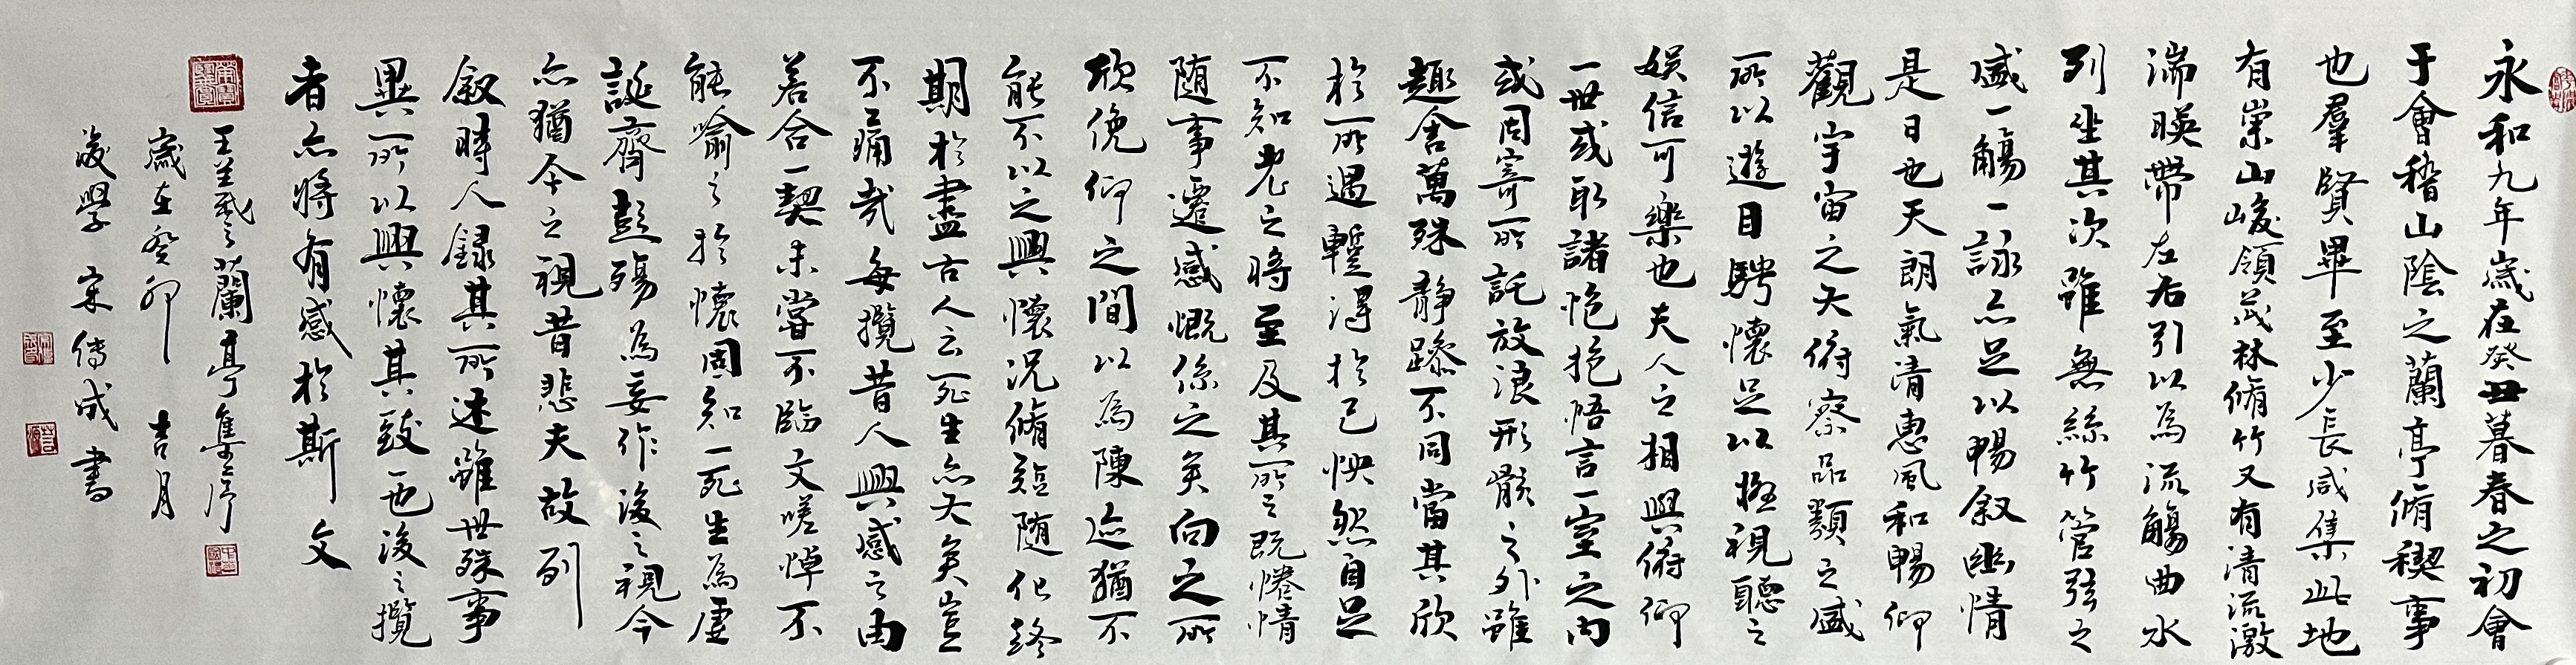 永和九年歲在癸丑暮春之初會
于會稽山陰之蘭亭脩稧事
也羣賢畢至少長咸集此地
有崇山峻領茂林脩竹又有清流激
湍暎帶左右引以為流觴曲水
列坐其次雖無絲竹管弦之
盛一觴一詠亦足以暢叙幽情
是日也天朗氣清惠風和暢仰
觀宇宙之大俯察品類之盛
所以遊目騁懷足以極視聽之
娛信可樂也夫人之相與俯仰
一世或取諸懷抱悟言一室之內
或因寄所託放浪形骸之外雖
趣舍萬殊静躁不同當其欣
於所遇暫得於己怏然自足
不知老之將至及其所之既惓情
随事遷感慨係之矣向之所
欣俛仰之間以為陳迹猶不
能不以之興懷況脩短随化終
期於盡古人云死生亦大矣豈
不痛哉每攬昔人興感之由
若合一契未嘗不臨文嗟悼不
能喻之於懷固知一死生為虛
誕齊彭殤為妄作後之視今
亦猶今之視昔悲夫故列
叙時人録其所述雖世殊事
異所以興懷其致一也後之攬
者亦將有感於斯文
王羲之蘭亭集序
歲在癸卯吉月
後學宋傳成書